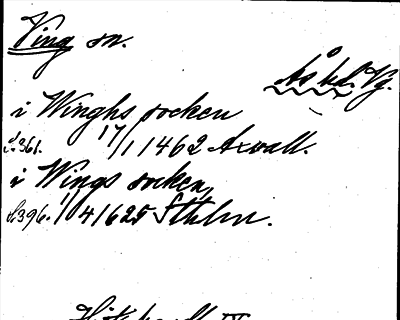 Ving sn.
Ås hd. Vg.
i Winghs socken
17/1 1462 Axvall.
i Wings socken,
1/4 1625 Sthlm.